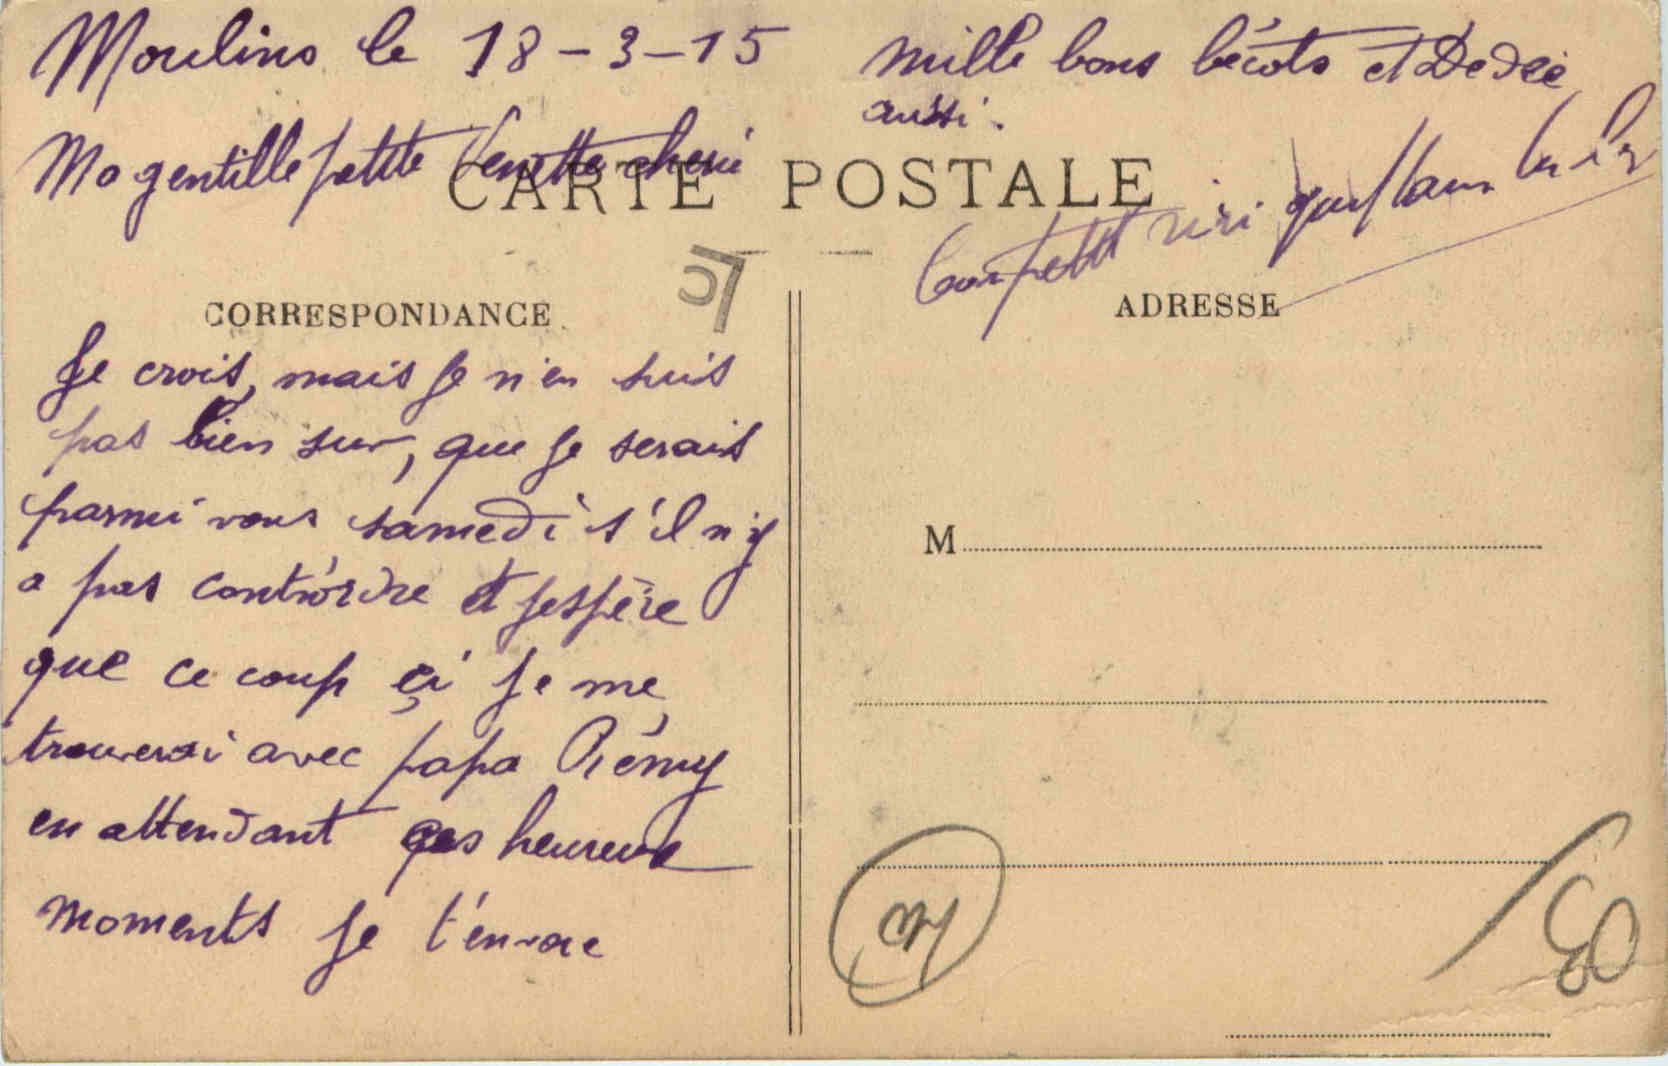 Moulins le 18-3-15
Ma gentille petite cherie
CARTE POSTALE
CORRESPONDANCE
Je crois, mais je n'en suis
pas bien sur, que je serais
parmi vous samedi s'il n'y
a pas contr'ordre et j'espère
que ce coup çi je me
trouverai avec papa Rémy
en attendant ces heureux
moments je t'envoie
mille bons bécots et Dedée
aussi.
Ton petit riri
ADRESSE
M